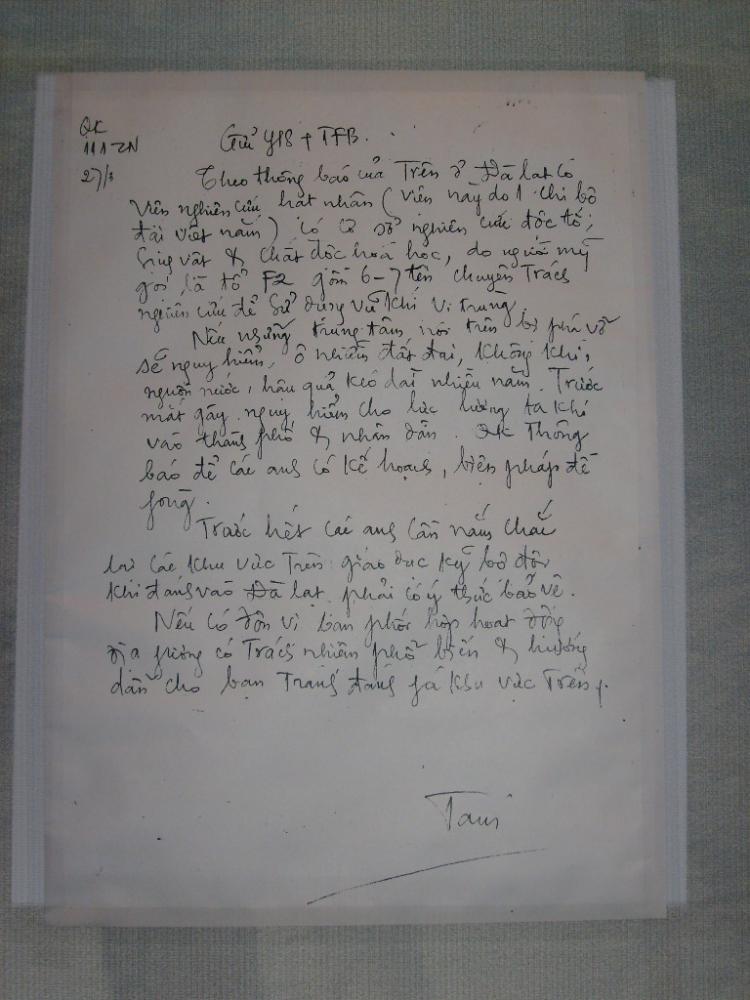 QK
111-ZN
27/3
Gửi Y18 + TFB.
Theo thông báo của Trên ở Đà lạt có
Viên nghiên cứu hạt nhân (viên này do 1 chi bộ
đại việt nắm) có cơ sở nghiên cứu độc tố,
sinh vật & chất độc hoá học, do người mỹ
gọi là tổ F2 gồm 6-7 tên chuyên Trách
nghiên cứu để Sử dụng vũ khí vi trùng.
Nếu những trung tâm nói trên bị phá vỡ
sẽ nguy hiểm, ô nhiễm đất đai, không khí,
nguồn nước, hậu quả kéo dài nhiều năm. Trước
mắt gây nguy hiểm cho lực lượng ta khi
vào thành phố & nhân dân. QK Thông
báo để các anh có kế hoạch, biện pháp đề
fòng.
Trước hết các anh cần nắm chắc
lại các khu vực Trên giáo dục kỹ bộ đội
khi đánh vào Đà lạt phải có ý thức bảo vệ.
Nếu có đơn vị bạn phối hợp hoạt động
địa fương có Trách nhiệm phổ biến & hướng
dẫn cho bạn Tránh đánh fá khu vực Trên.